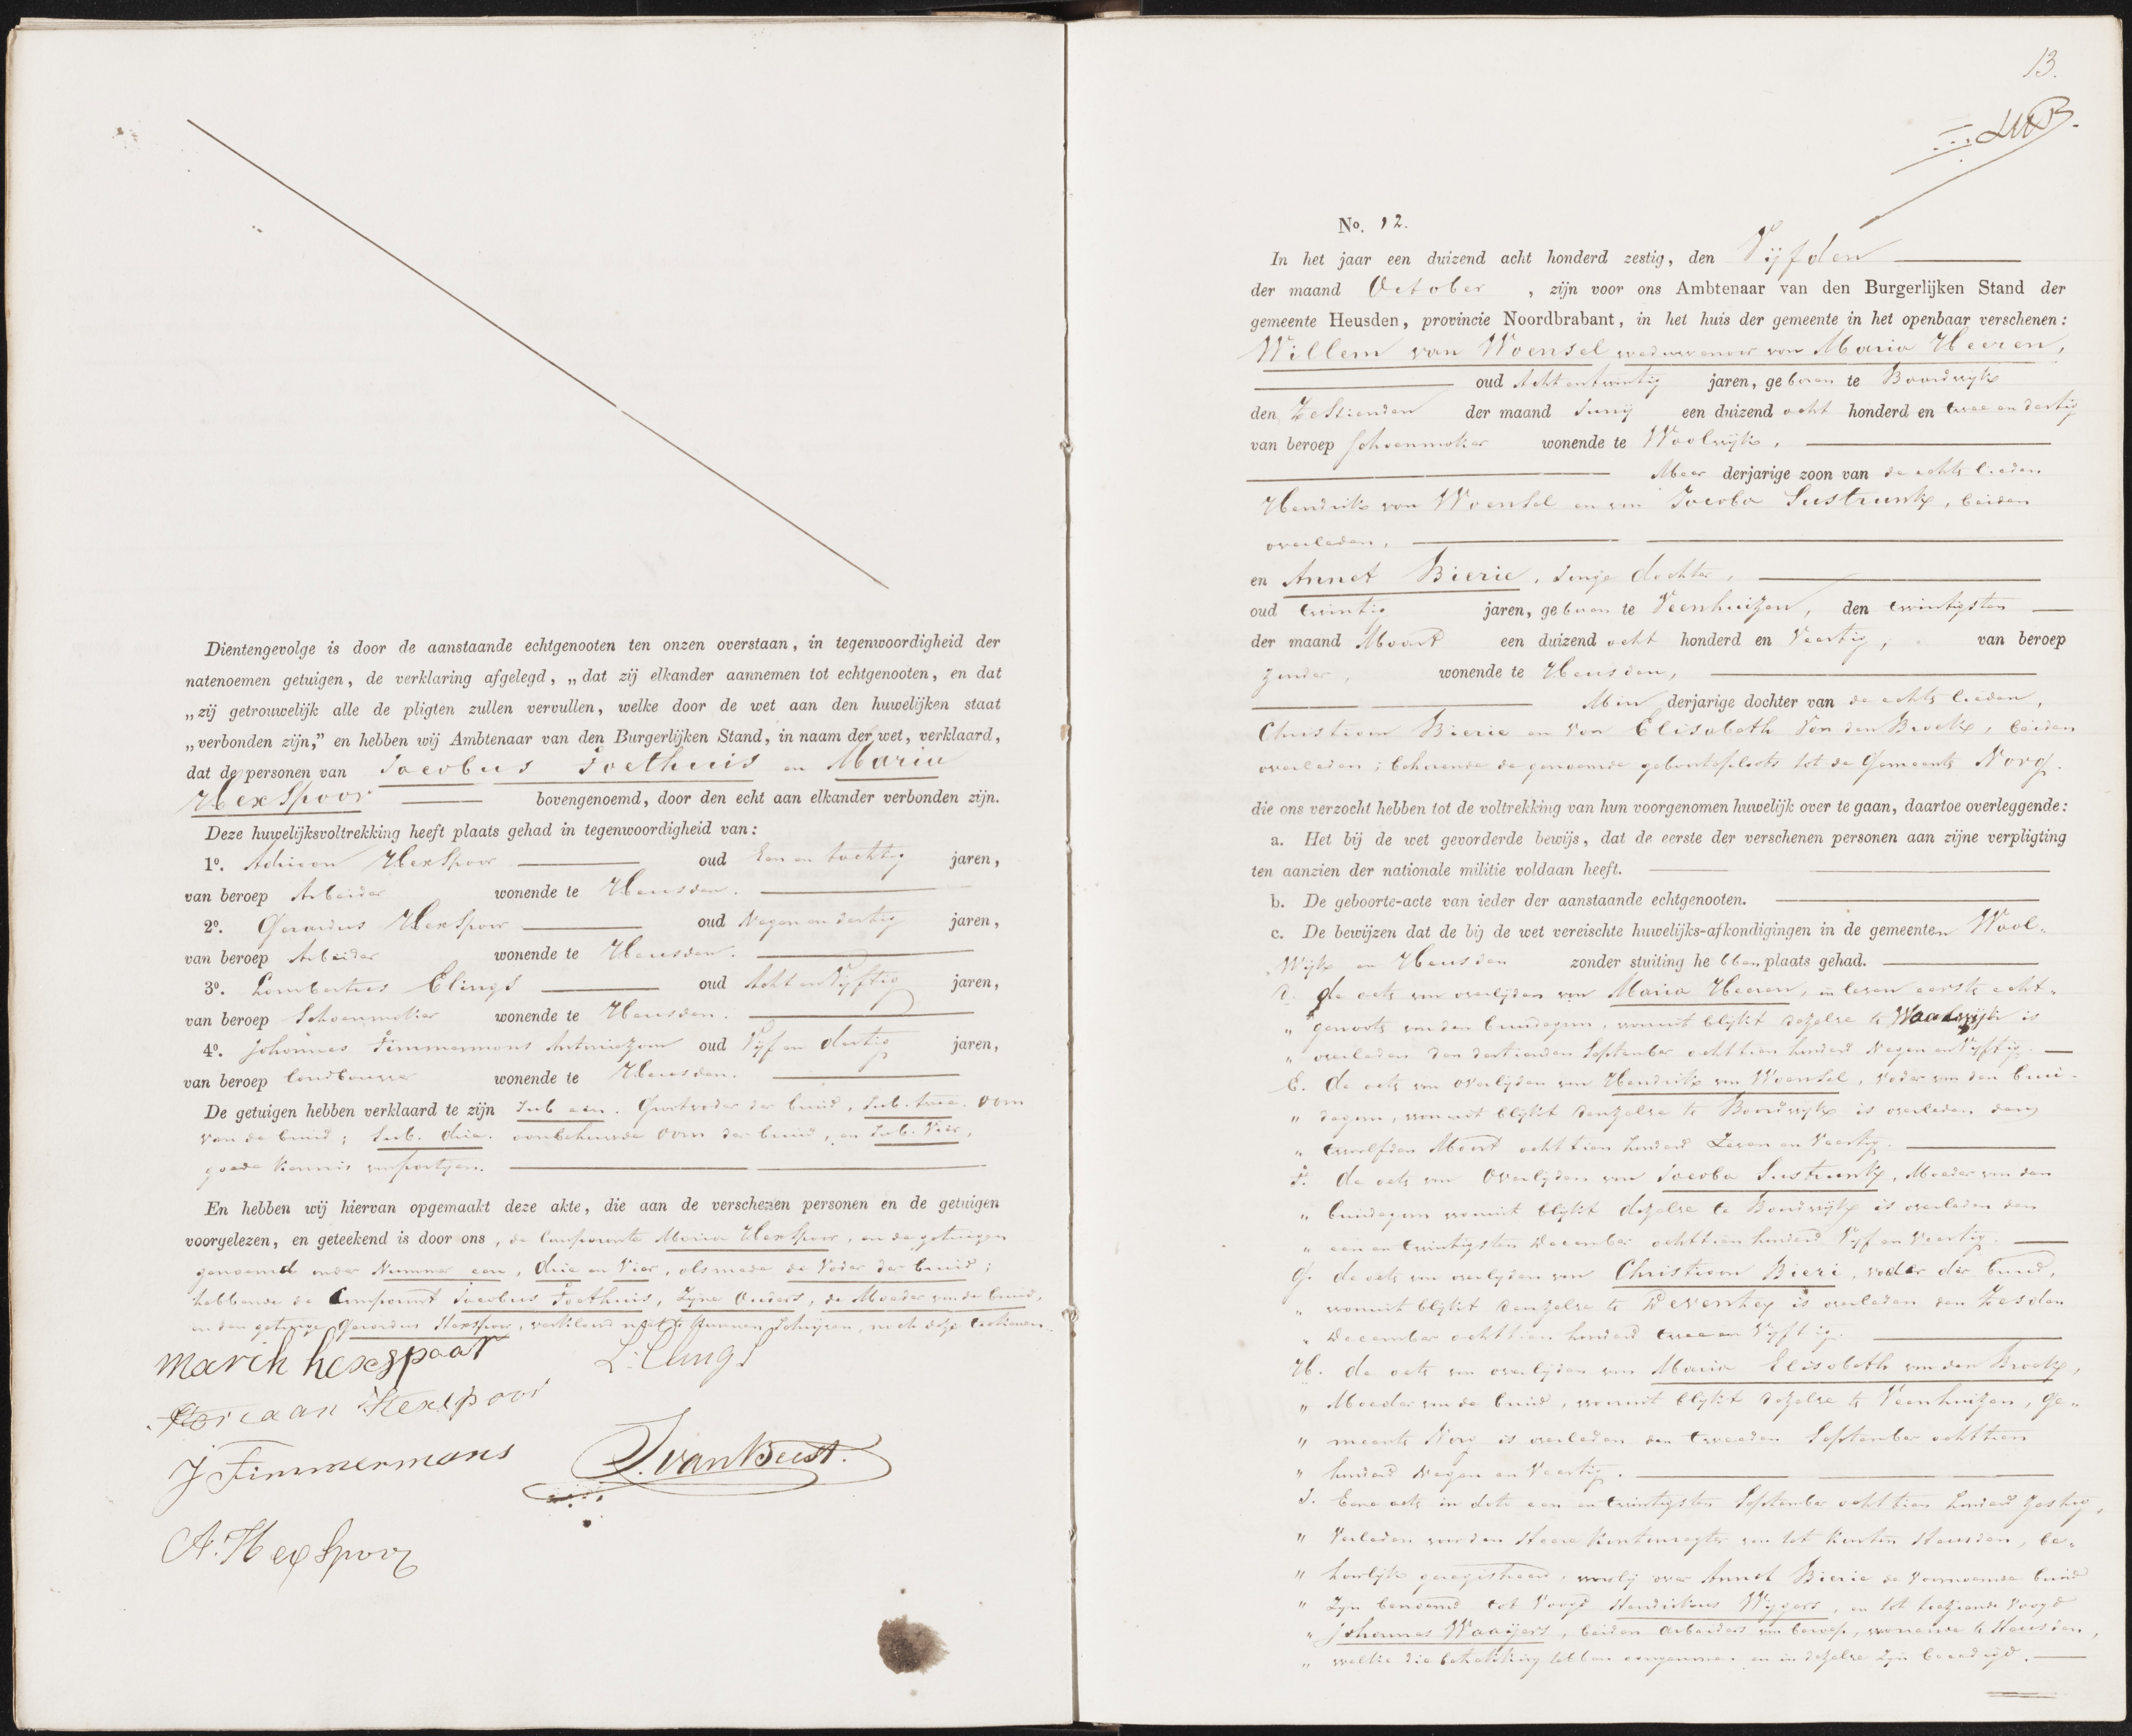 Dientengevolge is door de aanstaande echtgenooten ten onzen overstaan, in tegenwoordigheid der
natenoemen getuigen, de verklaring afgelegd, „dat zij elkander aannemen tot echtgenooten, en dat
„zij getrouwelijk alle de pligten zullen vervullen, welke door de wet aan den huwelijken staat
„verbonden zijn,” en hebben wij Ambtenaar van den Burgerlijken Stand, in naam der wet, verklaard,
dat de personen van Jacobus Toethuis en Maria
Hexspoor bovengenoemd, door den echt aan elkander verbonden zijn.
Deze huwelijksvoltrekking heeft plaats gehad in tegenwoordigheid van:
1o. Adriaan Hexspoor oud Een en tachtig jaren,
van beroep Arbeider wonende te Heusden.
2o. Gerardus Hexspoor oud Negen en dertig jaren,
van beroep Arbeider wonende te Heusden.
3o. Lambertus Elings oud Acht en Vijftig jaren,
van beroep Schoenmaker wonende te Heusden.
4o. Johannes Timmermans Antoniezoon oud Vijf en dertig jaren,
van beroep landbouwer wonende te Heusden.
De getuigen hebben verklaard te zijn Sub een. Grootvader der bruid, Sub. twee. oom
van de bruid; Sub. drie. aanbehuwde oom der bruid, en Sub. Vier,
goede kennis van partijen.
En hebben wij hiervan opgemaakt deze akte, die aan de verschenen personen en de getuigen
voorgelezen, en geteekend is door ons, de Comparante Maria Hexspoor, en de getuigen
genoemd onder Nummer een, drie en Vier, alsmede de Vader der bruid;
hebbende de Comparant Jacobus Toethuis, Zijne Ouders, de Moeder van de bruid,
en den getuige Gerardus Hexspoor, verklaard niet te kunnen Schrijven, noch deze teekenen.
march hexspaar L: Elings
Adriaan Hexspoor
J Timmermans J. van Beest.
A. Hexspoor
13.
No. 12.
In het jaar een duizend acht honderd zestig, den Vijfden
der maand October, zijn voor ons Ambtenaar van den Burgerlijken Stand der
gemeente Heusden, provincie Noordbrabant, in het huis der gemeente in het openbaar verschenen:
Willem van Woensel weduwenaar van Maria Heeren,
oud Acht en twintig jaren, geboren te Baardwijk
den Zestienden der maand Junij een duizend acht honderd en twee en dertig
van beroep Schoenmaker wonende te Waalwijk,
Meerderjarige zoon van de echte lieden
Hendrik van Woensel en van Jacoba Sustrunk, beiden
overleden,
en Annet Bierie, Jonge dochter,
oud twintig jaren, geboren te Veenhuizen, den twintigsten
der maand Maart een duizend acht honderd en Veertig, van beroep
zonder, wonende te Heusden,
Minderjarige dochter van de echte lieden,
Christiaan Bierie en van Elisabeth Van den Broek, beiden
overleden; behorende de genoemde geboorteplaats tot de Gemeente Norg.
die ons verzocht hebben tot de voltrekking van hun voorgenomen huwelijk over te gaan, daartoe overleggende:
a. Het bij de wet gevorderde bewijs, dat de eerste der verschenen personen aan zijne verpligting
ten aanzien der nationale militie voldaan heeft.
b. De geboorte-acte van ieder der aanstaande echtgenooten.
c. De bewijzen dat de bij de wet vereischte huwelijks-afkondigingen in de gemeenten Waal-
Wijk en Heusden zonder stuiting hebben plaats gehad.
d. de acte van overlijden van Maria Heeren, in leven eerste echt-
„ genoote van den bruidegom, waaruit blijkt dezelve te Waalwijk is
„ overleden den dertienden September achttien honderd Negen en Vijftig.
E. de acte van Overlijden van Hendrik van Woensel, Vader van den brui-
„ degom, waaruit blijkt denzelve te Baardwijk is overleden den
„ twaalfden Maart achttien honderd Zeven en Veertig.
F. de acte van Overlijden van Jacoba Sustrunk, Moeder van den
„ bruidegom waaruit blijkt dezelve te Baardwijk is overleden den
„ een en twintigsten December achttien honderd Vijf en Veertig.
G. de acte van overlijden van Christiaan Bieri, vader der bruid,
„ waaruit blijkt denzelve te Deventer is overleden den Zesden
„ December achttien honderd twee en Vijftig.
H. de acte van overlijden van Maria Elisabeth van den Broek,
„ Moeder van de bruid, waaruit blijkt dezelve te Veenhuizen, ge-
„ meente Norg is overleden den tweeden September achttien
„ honderd Negen en Veertig.
I. Eene acte in dato een en twintigsten September achttien honderd zestig,
„ Verleden voor den Heere Kantonregter van het Kanton Heusden, be-
„ hoorlijk geregistreerd, waarbij over Annet Bierie de voornoemde bruid
„ Zijn benoemd tot Voogd Hendrikus Wijgers, en tot toeziende Voogd
„ Johannes Waaijers, beiden arbeiders van beroep, wonende te Heusden,
„ welke die betrekking hebben aangenomen en in dezelve zijn beëedigd.